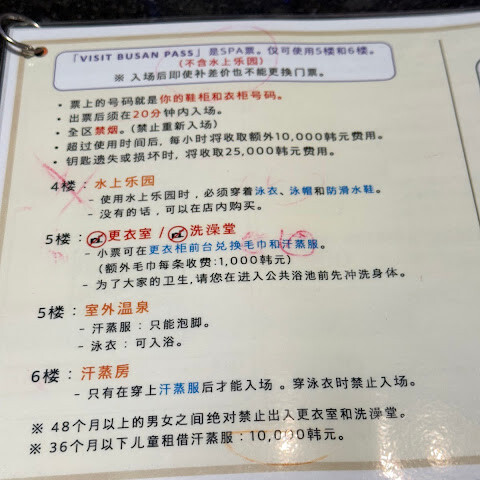 「VISIT BUSAN PASS」是SPA票。仅可使用5楼和6楼。
(不含水上乐园)
※ 入场后即使补差价也不能更换门票。
• 票上的号码就是你的鞋柜和衣柜号码。
• 出票后须在20分钟内入场。
• 全区禁烟。(禁止重新入场)
• 超过使用时间后, 每小时将收取额外10,000韩元费用。
• 钥匙遗失或损坏时, 将收取25,000韩元费用。
4楼 : 水上乐园
- 使用水上乐园时, 必须穿着泳衣、泳帽和防滑水鞋。
- 没有的话, 可以在店内购买。
5楼 : 更衣室 / 洗澡堂
- 小票可在更衣柜前台兑换毛巾和汗蒸服。
(额外毛巾每条收费:1,000韩元)
- 为了大家的卫生, 请您在进入公共浴池前先冲洗身体。
5楼 : 室外温泉
- 汗蒸服 : 只能泡脚。
- 泳衣 : 可入浴。
6楼 : 汗蒸房
- 只有在穿上汗蒸服后才能入场 。穿泳衣时禁止入场。
※ 48个月以上的男女之间绝对禁止出入更衣室和洗澡堂。
※ 36个月以下儿童租借汗蒸服 : 10,000韩元。